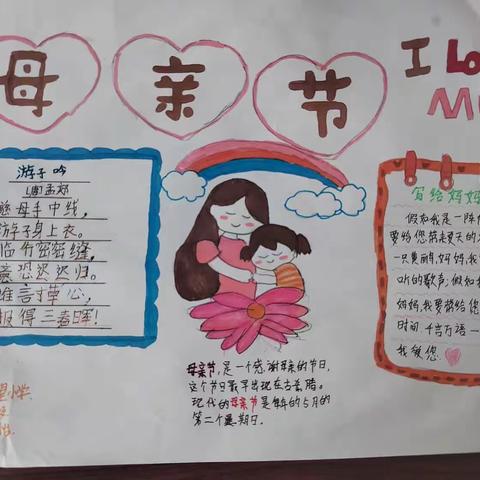 母亲节
I Lo
M
游子吟
孟郊
慈母手中线，
游子身上衣。
临行密密缝，
意恐迟迟归。
谁言寸草心，
报得三春晖！
写给妈妈
假如我是一阵
要给您带来夏天的
一只黄丽，妈妈，我
听的歌声；假如
妈妈，我要献给您
时间，千言万语一
我爱您
母亲节，是一个感谢母亲的节日，
这个节日最早出现在古希腊。
现代的母亲节是每年的5月的
第二个星期日。